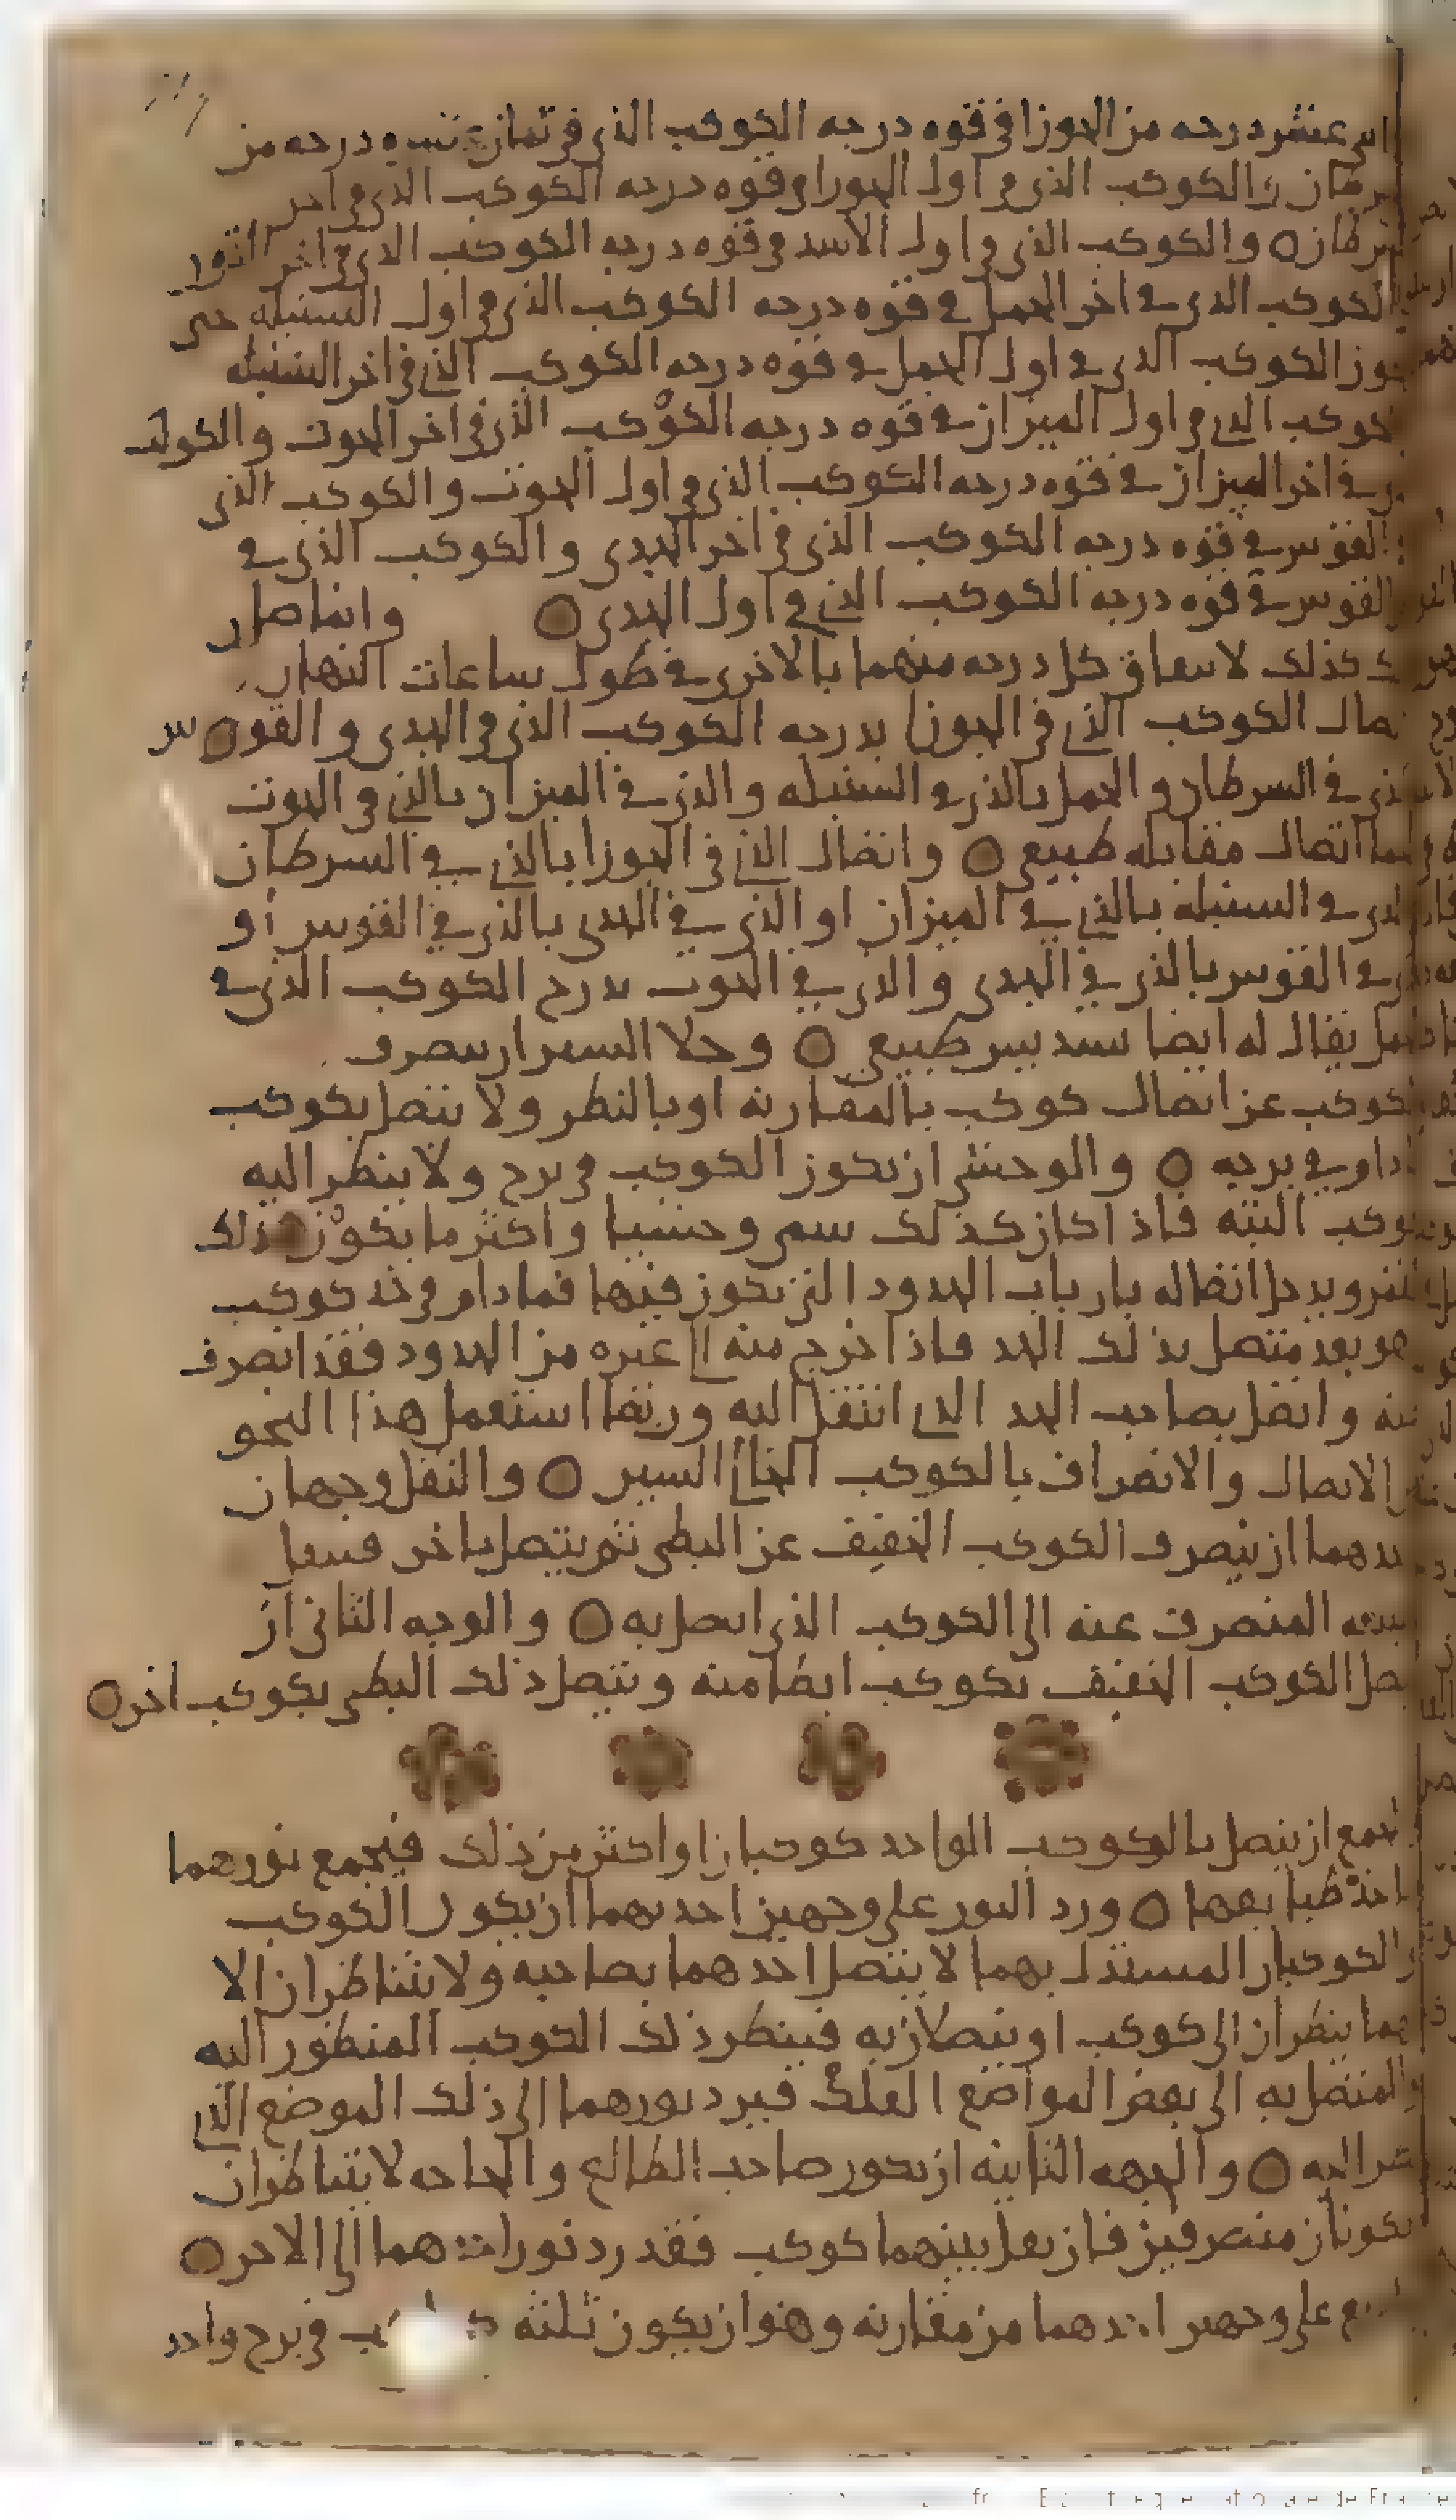 عشر درجه من الجوزا في قوه درجه الكوكب الذي في ثمان عشره درجه من
والكوكب الذي في اول الجوزا في قوه درجه الكوكب الذي في اخر
السرطان ○ والكوكب الذي في اول الاسد في قوه درجه الكوكب الذي في اخر الثور
والكوكب الذي في اخر الحمل في قوه درجه الكوكب الذي في اول السنبله حتى
يكون الكوكب الذي في اول الحمل في قوه درجه الكوكب الذي في اخر السنبله
الكوكب الذي في اول الميزان في قوه درجه الكوكب الذي في اخر الحوت والكوكب
في اخر الميزان في قوه درجه الكوكب الذي في اول الحوت والكوكب الذي
القوس في قوه درجه الكوكب الذي في اخر الجدي والكوكب الذي في
القوس في قوه درجه الكوكب الذي في اول الجدي ○ وانما صار
كذلك لاتفاق كل درجه منهما بالاخرى في طول ساعات النهار
اتصال الكوكب الذي في الجوزا بدرجه الكوكب الذي في الجدي والقوس
الذي في السرطان والحمل بالذي في السنبله والذي في الميزان بالذي في الحوت
اتصال مقابله طبيعي ○ واتصال الذي في الجوزا بالذي في السرطان
الذي في السنبله بالذي في الميزان او الذي في الجدي بالذي في القوس او
في القوس بالذي في الجدي والذي في الحوت بدرج الكوكب الذي في
يقال له ايضا تسديس طبيعي ○ وخلا السير ان ينصرف
الكوكب عن اتصال كوكب بالمقارنه او بالنظر ولا يتصل بكوكب
ما دام في برجه ○ والوحشي ان يكون الكوكب في برج ولا ينظر اليه
كوكب البته فاذا كان كذلك سمي وحشيا واكثر ما يكون ذلك
للقمر ويدخل اتصاله بارباب الحدود التي يكون فيها فما دام في حد كوكب
فهو بعد متصل بذلك الحد فاذا خرج منه الى غيره من الحدود فقد انصرف
عنه واتصل بصاحب الحد الذي انتقل اليه وربما استعمل هذا النحو
الاتصال والانصراف بالكوكب الخالي السير ○ والنقل وجهان
احدهما ان ينصرف الكوكب الخفيف عن البطي ثم يتصل باخر فينقل
طبيعه المنصرف عنه الى الكوكب الذي اتصل به ○ والوجه الثاني ان
يتصل الكوكب الخفيف بكوكب ابطا منه ويتصل ذلك البطي بكوكب اخر ○
الجمع ان يتصل بالكوكب الواحد كوكبان او اكثر من ذلك فيجمع نورهما
وياخذ طبايعهما ○ ورد النور على وجهين احدهما ان يكون الكوكب
والكوكبان المستدل بهما لا يتصل احدهما بصاحبه ولا يتناظران الا
انهما ينظران الى كوكب او يتصلان به فينظر ذلك الكوكب المنظور اليه
والمتصل به الى بعض المواضع الفلك فيرد نورهما الى ذلك الموضع الذي
نظر اليه ○ والجهه الثانيه ان يكون صاحب الطالع والحاجه لا يتناظران
يكونان منصرفين فان نقل بينهما كوكب فقد رد نور احدهما الى الاخر ○
على وجهين احدهما من مقارنه وهو ان يكون ثلثه في برج واحد